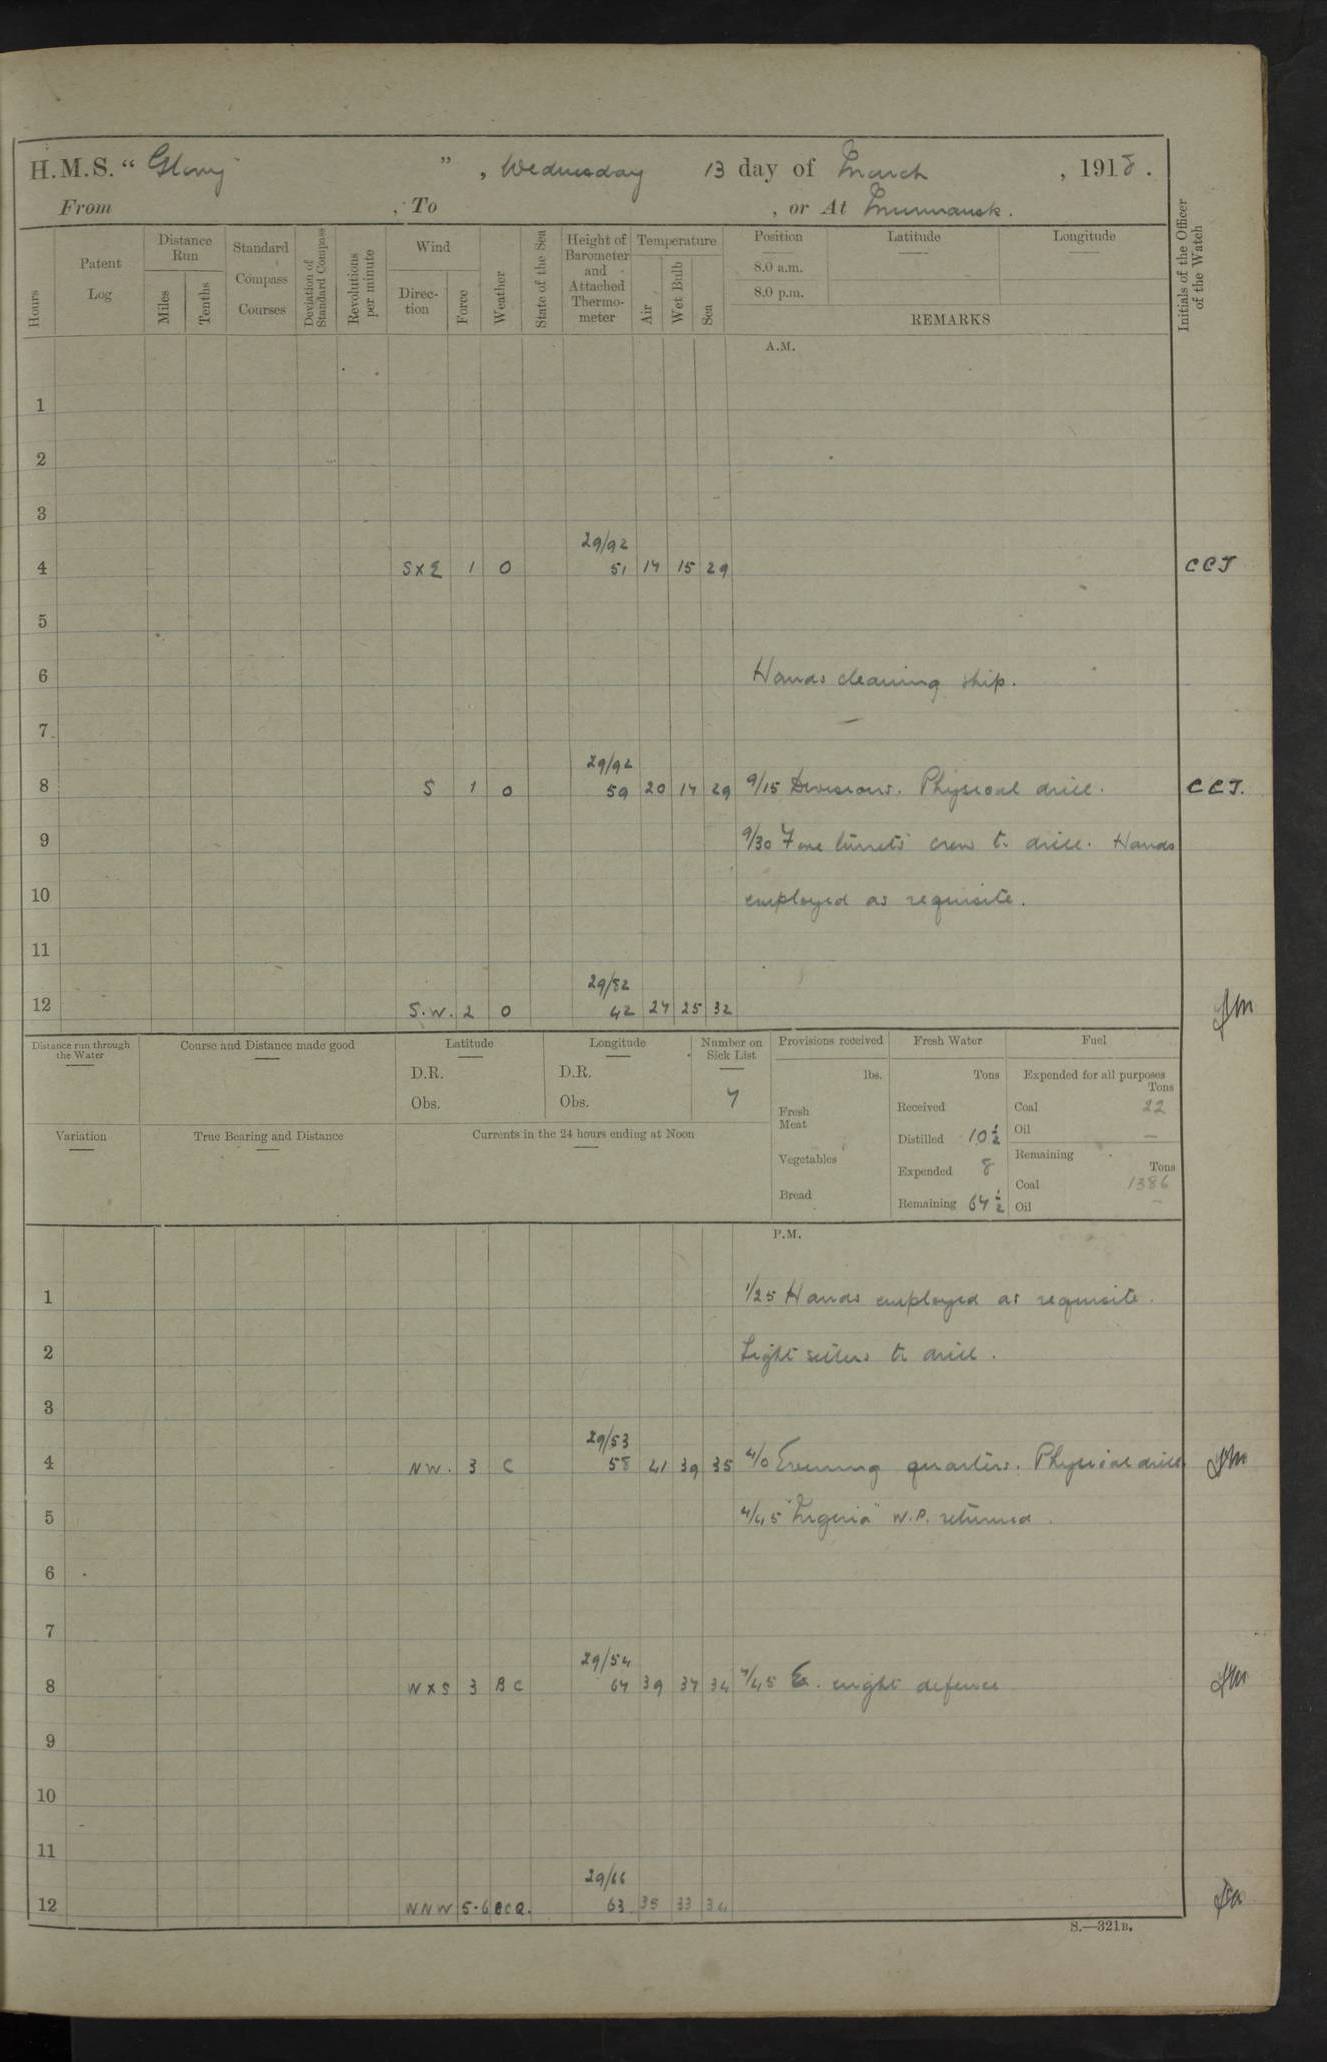 H.M.S. “ Glory ”, Wednesday 13 day of March, 1918.
From , To , or At Murmansk.
Hours
Patent Log
Distance Run
Miles
Tenths
Standard Compass Courses
Deviation of Standard Compass
Revolutions per minute
Wind
Direction
Force
Weather
State of the Sea
Height of Barometer and Attached Thermometer
Temperature
Air
Wet Bulb
Sea
Position
8.0 a.m.
8.0 p.m.
Latitude
Longitude
REMARKS
Initials of the Officer of the Watch
A.M.
1
2
3
29/92
4 SXE 1 O 51 17 15 29 CCJ
5
6 Hands cleaning ship.
7
29/92
8 S 1 O 59 20 17 29 9/15 Divisions. Physical drill. CCJ.
9 9/30 Fore turrets crew to drill. Hands
10 employed as requisite.
11
29/82
12 S.W. 2 O 42 27 25 32
Distance run through the Water
Course and Distance made good
Latitude
D.R.
Obs.
Longitude
D.R.
Obs.
Number on Sick List
7
Provisions received
lbs.
Fresh Meat
Vegetables
Bread
Fresh Water
Tons
Received
Distilled 10½
Expended 8
Remaining 67½
Fuel
Expended for all purposes
Tons
Coal 22
Oil —
Remaining
Tons
Coal 1386
Oil —
Variation
True Bearing and Distance
Currents in the 24 hours ending at Noon
P.M.
1 1/25 Hands employed as requisite.
2 Light to drill.
3
29/53
4 NW. 3 C 58 41 39 35 4/0 Evening quarters. Physical drill
5 4/45 "Nigeria" N.P. returned.
6
7
29/54
8 WXS 3 BC 67 39 37 34 7/45 Ex. night defence
9
10
11
29/66
12 WNW 5-6 BCQ. 63 35 33 34
S.—321B.